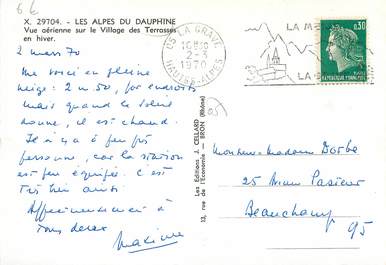 X. 29704. - LES ALPES DU DAUPHINE
Vue aérienne sur le Village des Terrasses
en hiver.
2 mars 70
me voici en pleine
neige : 2 m 50, par endroits
mais quand le soleil
donne, il est chaud.
Il n'y a à peu près
personne, car la station
est peu équipée. C'est
très bien ainsi.
Affectueusement à
tous deux
Maxime
Les Editions J. CELLARD
13, rue de l'Economie - BRON (Rhône)
05 LA GRAVE
2-3
1970
HAUTES-ALPES
LA ME
LA G
0,30
REPUBLIQUE FRANÇAISE
Monsieur-Madame Dorbe
25 Avenue Pasteur
Beauchamp
95